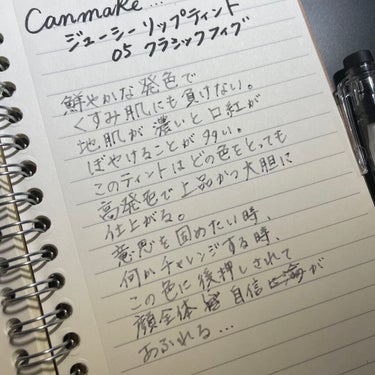 Canmake...
ジューシーリップティント
05 クラシックフィグ
鮮やかな発色で
くすみ肌にも負けない。
地肌が濃いと口紅が
ぼやけることが多い。
このティントはどの色をとっても
高発色で上品かつ大胆に
仕上がる。
意思を固めたい時、
何かチャレンジする時、
この色に後押しされて
顔全体 自信 が
あふれる...